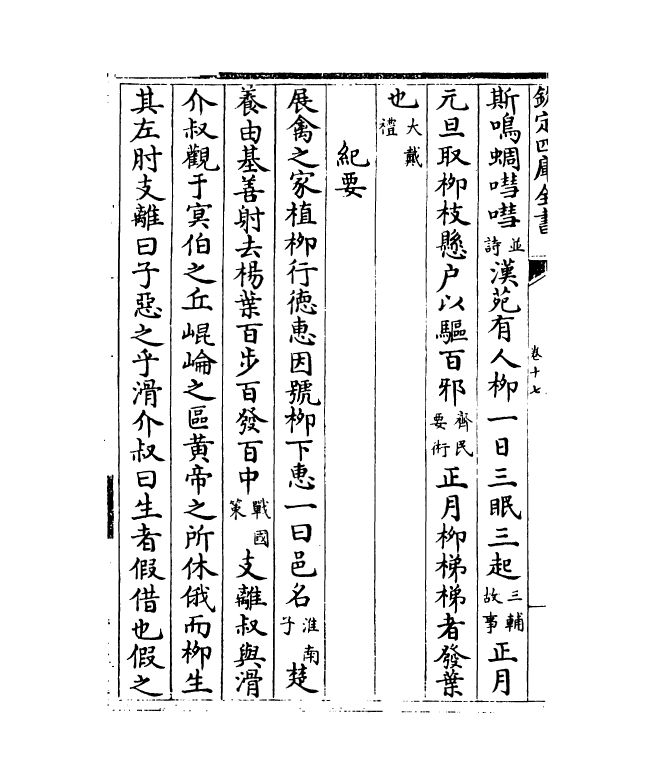 欽定四庫全書
卷十七
斯鳴蜩嘒嘒並詩漢苑有人柳一日三眠三起三輔故事正月
元旦取柳枝懸户以驅百邪齊民要術正月柳梯梯者發葉
也大戴禮
紀要
展禽之家植柳行徳惠因號柳下惠一曰邑名淮南子楚
養由基善射去楊葉百步百發百中戰國策支離叔與滑
介叔觀于㝠伯之丘崐崘之區黄帝之所休俄而柳生
其左肘支離曰子惡之乎滑介叔曰生者假借也假之